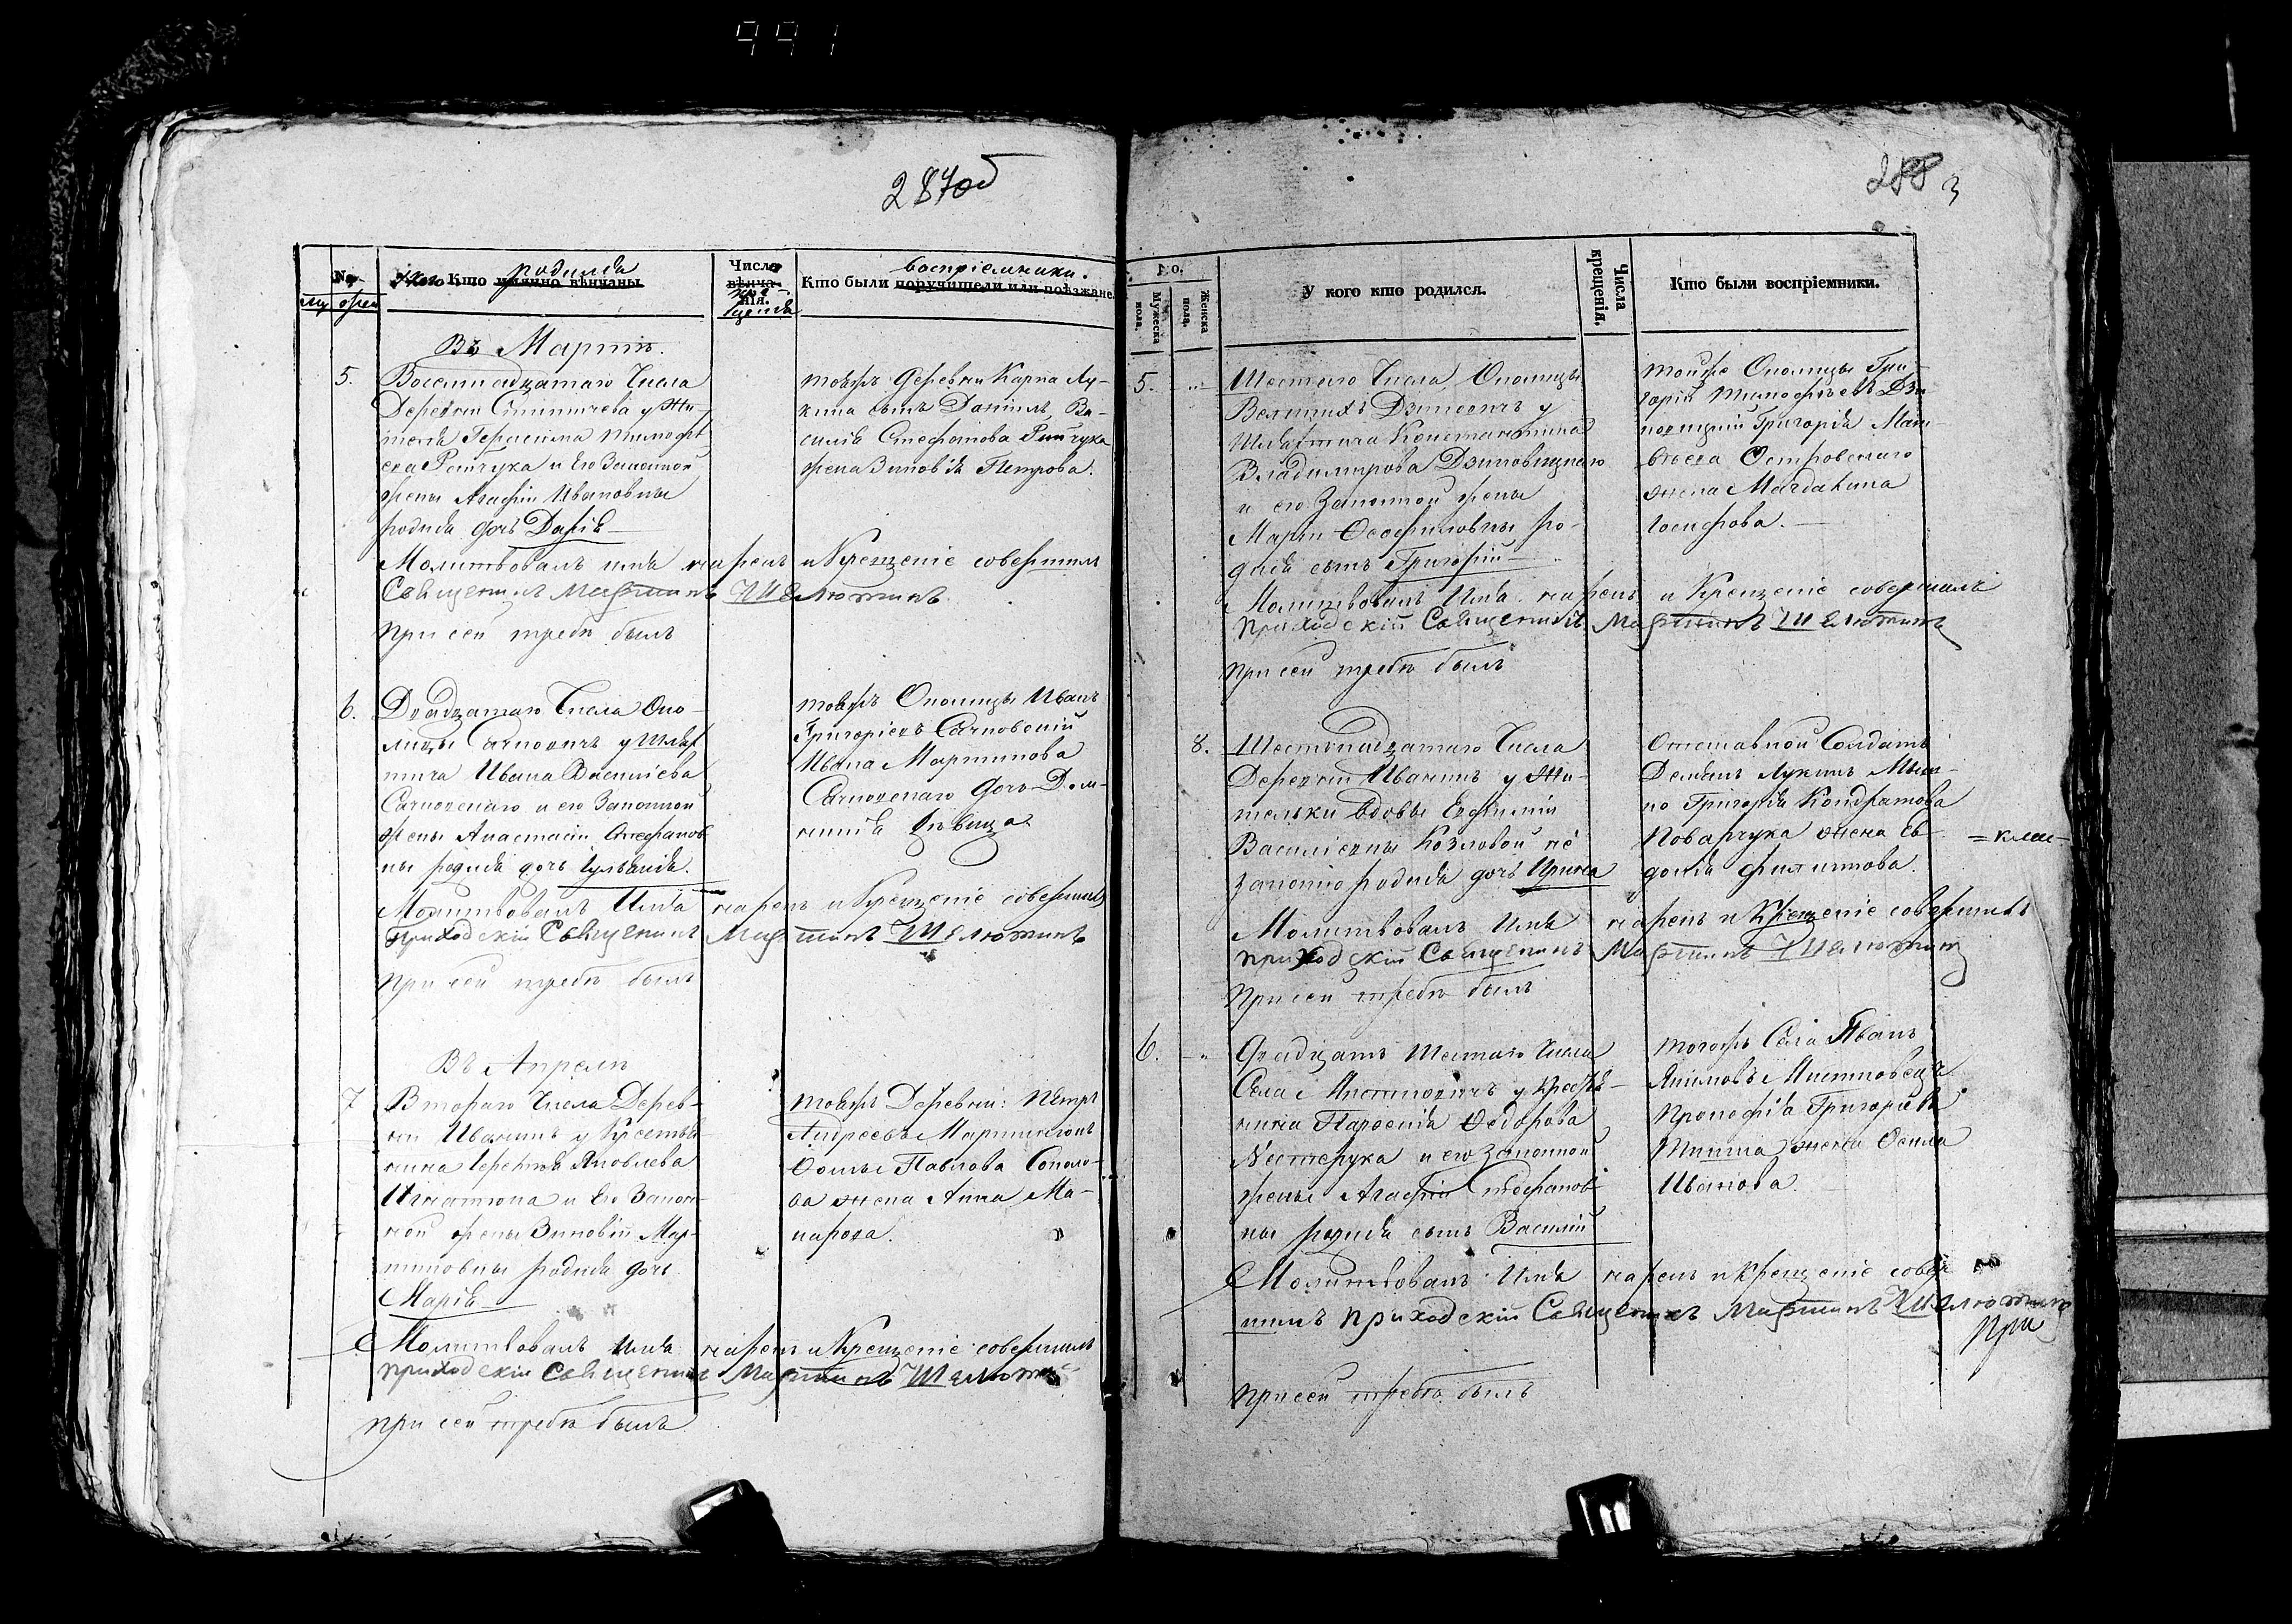 991
287об
No
му жен
у кого Кто родился
Числа крещенія
Кто были воспріемники.
Въ Мартѣ.
5. Восемнадцатаго Числа
Деревни у Жи-
теля Герасима Тимофѣ
ева Райчука и Его Законной
жены Агафіи Ивановны
родися дочь Дарія
тояжъ Деревни Карпа Лу-
кина сынъ Даніилъ, Ва-
силія Стефанова Райчука
жена Зиновія Петрова.
Молитвовалъ имя нарекъ и Крещеніе совершилъ
Священникъ Мартинъ Шелютинъ
При сей требѣ былъ
6. Двадцатаго Числа Око-
лицы Сачковичъ у Шлях
тича Ивана Василіева
Сачковскаго и его Законной
жены Анастасіи Стефанов
ны родися дочь Іуліанія.
тояжъ Околицы Иванъ
Григоріевъ Сачковскій
Ивана Мартинова
Сачковскаго дочь Дом-
никія дѣвица
Молитвовалъ Имя нарекъ и Крещеніе совершилъ
приходскій Священникъ Мартинъ Шелютинъ
При сей требѣ былъ
Въ Апрелѣ
7 Втораго Числа Дерев-
ни Иваникъ у Крестья-
нина Яковлева
Игнатюка и Его Закон-
ной жены Зиновіи Мар-
тиновны родися дочь
Марія
тояжъ Деревни: Петръ
Андреевъ Мартинюкъ
Фомы Павлова Соколо-
ва жена Анна Ма-
карова.
Молитвовалъ Имя нарекъ и Крещеніе совершилъ
приходскій Священникъ Мартинъ Шелютинъ
при сей требѣ былъ
288
3
No.
Мужеска пола.
Женска пола.
У кого кто родился.
Числа крещенія.
Кто были воспріемники.
5. Шестаго Числа Околицы
Великихъ Дзиковичъ у
Шляхтича Константина
Владимирова Дзиковицкаго
и его Законной жены
Маріи Ѳеофиловны ро-
дися сынъ Григорій
тойже Околицы Гри-
горій Тимофѣевъ Дзи
ковицкій Григорія Мат-
вѣева Островскаго
жена Магдалина
Іосифова.
Молитвовалъ Имя нарекъ и Крещеніе совершилъ
приходскій Священникъ Мартинъ Шелютинъ
при сей требѣ былъ
8. Шестнадцатаго Числа
Деревни Иваникъ у Жи-
тельки вдовы Евфиміи
Василіевны Козловой не
законно родися дочь Ирина
Отставной Солдатъ
Демьянъ Лукинъ
Григорія Кондратова
Поварчука жена Ев-
докія Филиппова.
Молитвовалъ Имя нарекъ и Крещеніе совершилъ
приходскій Священникъ Мартинъ Шелютинъ
При сей требѣ былъ
6. Двадцать шестаго Числа
Села у Крестья-
нина Парѳенія Ѳедорова
Нестерука и его Законной
жены Агафіи Стефанов
ны родися сынъ Василій
тогожъ Села Иванъ
Якимовъ
Прокофія Григоріева
жена Ѳекла
Иванова.
Молитвовалъ Имя нарекъ и Крещеніе совер
шилъ приходскій Священникъ Мартинъ Шелютинъ
при
При сей требѣ былъ